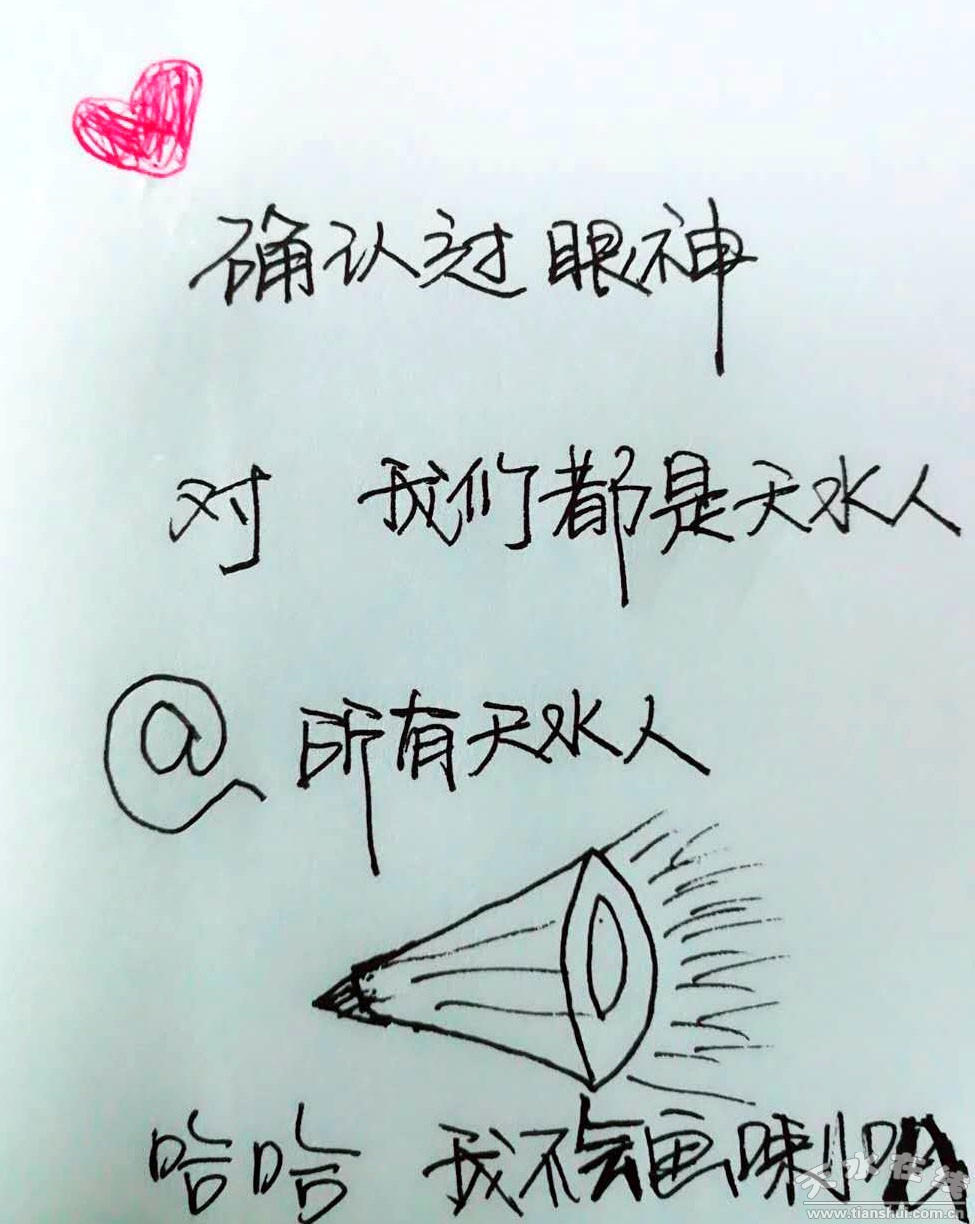 确认过眼神
对 我们都是天水人
@所有天水人
哈哈 我不会画喇叭
天水在线
www.tianshui.com.cn